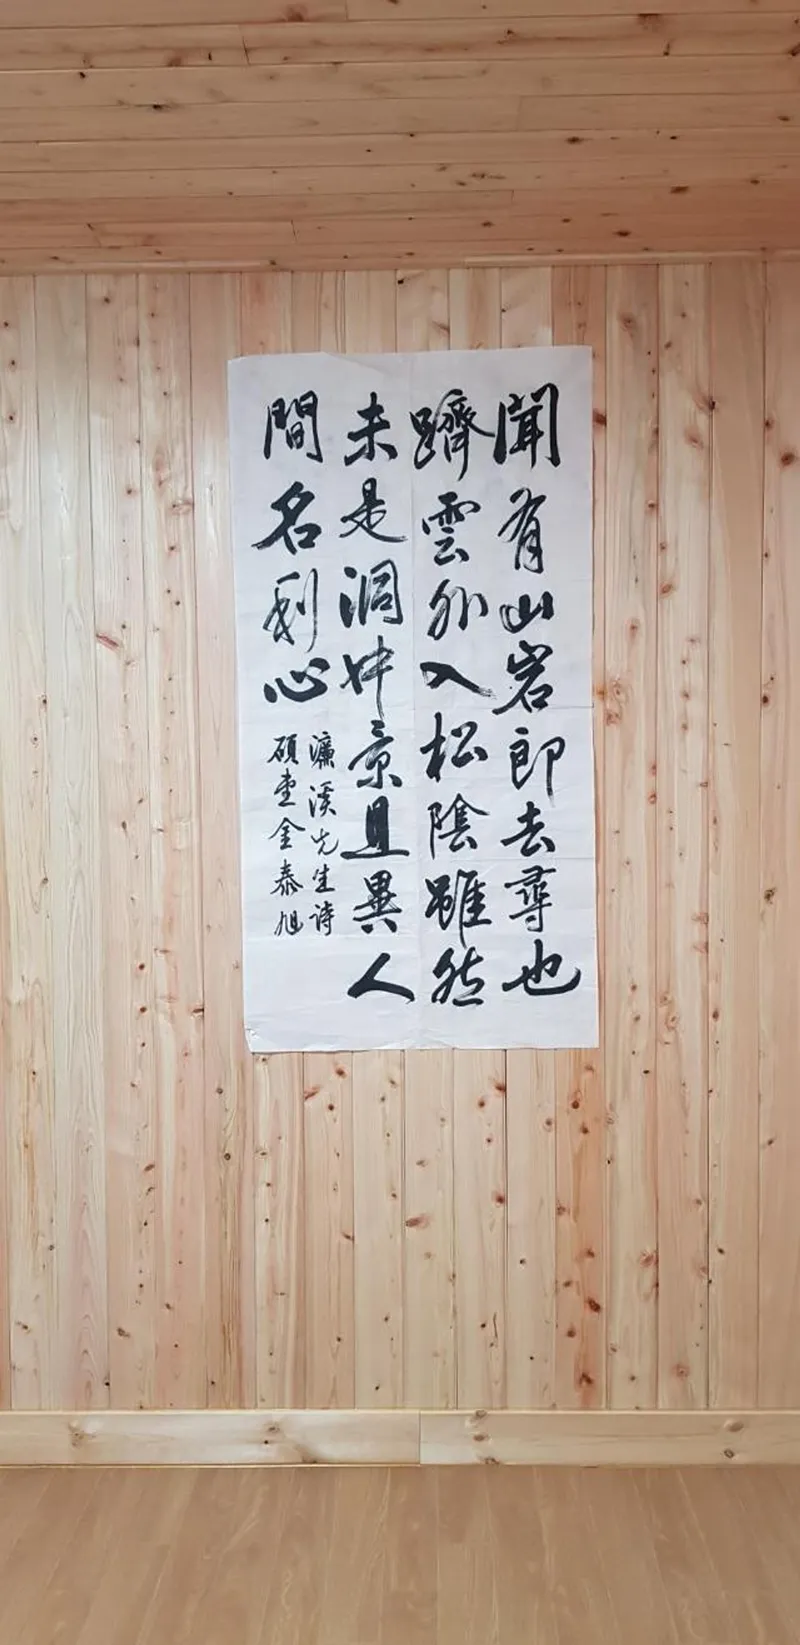 聞有山岩即去尋也
躋雲外入松陰雖然
未是洞中景且異人
間名利心
濂溪先生诗
硕堂金泰旭